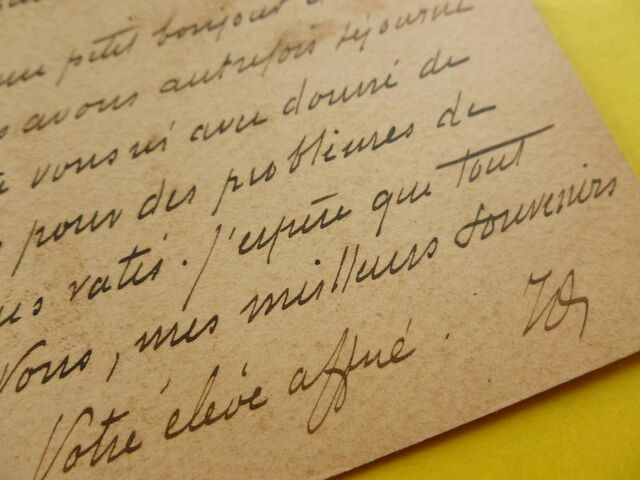 petit bonjour
avons autrefois séjourné
vous avec donné de
pour des problèmes de
ratés. J'espère que tout
Vous, mes meilleurs souvenirs
Votre élève affné.